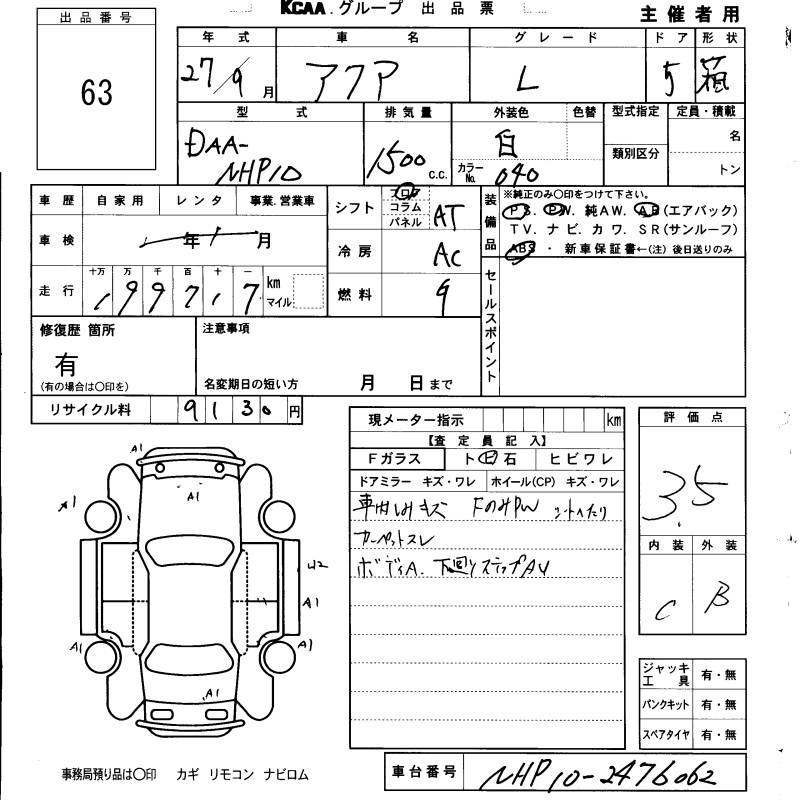 KCAA.グループ 出品票
主催者用
出品番号
63
年式 車名 グレード ドア 形状
27/9月 アクア L 5 箱
型式 排気量 外装色 色替 型式指定 定員・積載
DAA-NHP10 1500 C.C. 白 カラーNo. 040 類別区分 名 トン
車歴 自家用 レンタ 事業.営業車
車検 年 月
走行 十万 万 千 百 十 一 km マイル
199717
シフト フロア コラム パネル AT
冷房 AC
燃料 G
装備品
※純正のみ○印をつけて下さい。
P S. P W. 純AW. A B (エアバック)
TV. ナビ. カワ. SR(サンルーフ)
ABS ・ 新車保証書←(注) 後日送りのみ
セールスポイント
修復歴 箇所
有
(有の場合は○印を)
注意事項
名変期日の短い方 月 日まで
リサイクル料 9130円
現メーター指示 km
【査定員記入】
Fガラス ト ビ 石 ヒビワレ
ドアミラー キズ・ワレ ホイール(CP) キズ・ワレ
車内しみキズ FのみPW シートへたり
カーペットスレ
ボディA. 下回りステップAU
評価点
3.5
内装 外装
C B
A1
A1
A1
U2
A1
A1
A1
A1
ジャッキ 工具 有・無
パンクキット 有・無
スペアタイヤ 有・無
事務局預り品は○印 カギ リモコン ナビロム
車台番号 NHP10-2476062